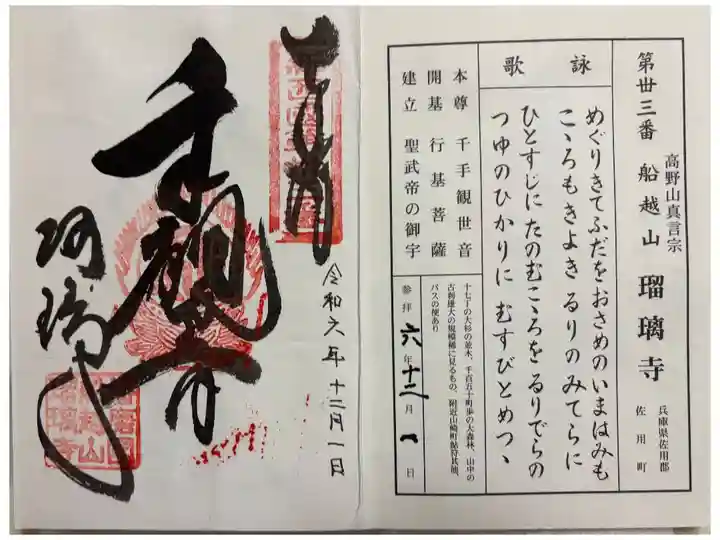 第丗三番 船越山 瑠璃寺
高野山真言宗
兵庫県佐用郡
佐用町
詠歌
めぐりきてふだをおさめのいまはみも
こゝろもきよき るりのみてらに
ひとすじに たのむこゝろを るりでらの
つゆのひかりに むすびとめつゝ
本尊 千手観世音
開基 行基菩薩
建立 聖武帝の御宇
十七丁の大杉の並木、千百五十町歩の大森林、山中の
古刹雄大の規模稀に見るもの、附近山崎町鮎狩其他、
バスの便あり
参拝 六年十二月一日
令和六年十二月一日
千手観音
瑠璃寺